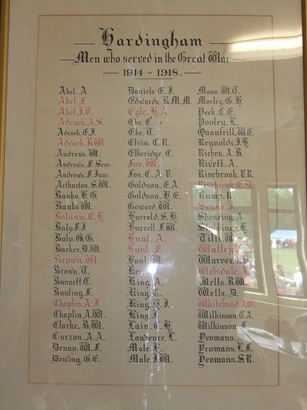 Hardingham
Men who served in the Great War
1914 - 1918.
Abel. A.
Abel. F.
Abel. J.T.
Adcock. A.S.
Adcock. E.J.
Adcock. R.W.
Andrews. W.
Andrews. F. Senr
Andrews. F. Junr
Arthurton. S.W.
Banks. H.G.
Banks. W.
Balaam. C.H.
Baly. F.J.
Baly. G.G.
Barker. D.W.
Brown. W.
Brown. T.
Bennett. C.
Bunting. F.
Chaplin. A. J.
Chaplin. A.W.
Clarke. R.W.
Curzon. A.A.
Denny. W.F.
Dewing. G.E.
Daniels. E. J.
Edwards. R.M.M.
Eke. C.
Eke. T.
Elvin. C.R.
Etheridge. C.
Fox. W.
Fox. C.A.V.
Goldson. E.A.
Goldson. H.E.
Howard. W.
Harrold. S.H.
Hurrell. F.W.
Hunt. A.
Hunt. F.
Hunt.
King. A.
King.
King. B. J.
King. J.
Lain. C. H.
Lawrence. L.
Male.
Male. J.W.
Mann. W.T.
Morley. G. H.
Peck. C.E.
Pooley. L.
Quantrill. W.E.
Reynolds. H.
Riches. A. R.
Rivett. A.
Risebrook. V.R.
Shearing. A.
Tills.
Walker.
Warren.
Mells. R.W.
Wells. D.
Whitehand. A.W.
Wilkinson. C.A.
Wilkinson.
Yeomans.
Yeomans. L.F.
Yeomans. S.R.